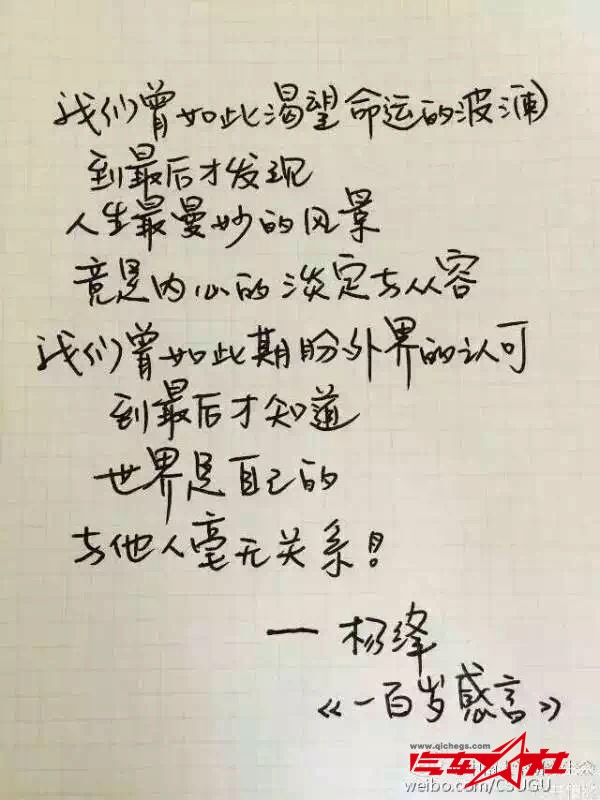 我们曾如此渴望命运的波澜
到最后才发现
人生最曼妙的风景
竟是内心的淡定与从容
我们曾如此期盼外界的认可
到最后才知道
世界是自己的
与他人毫无关系！
— 杨绛
《一百岁感言》
www.qichegs.com
汽车公社
weibo.com/CSUGU